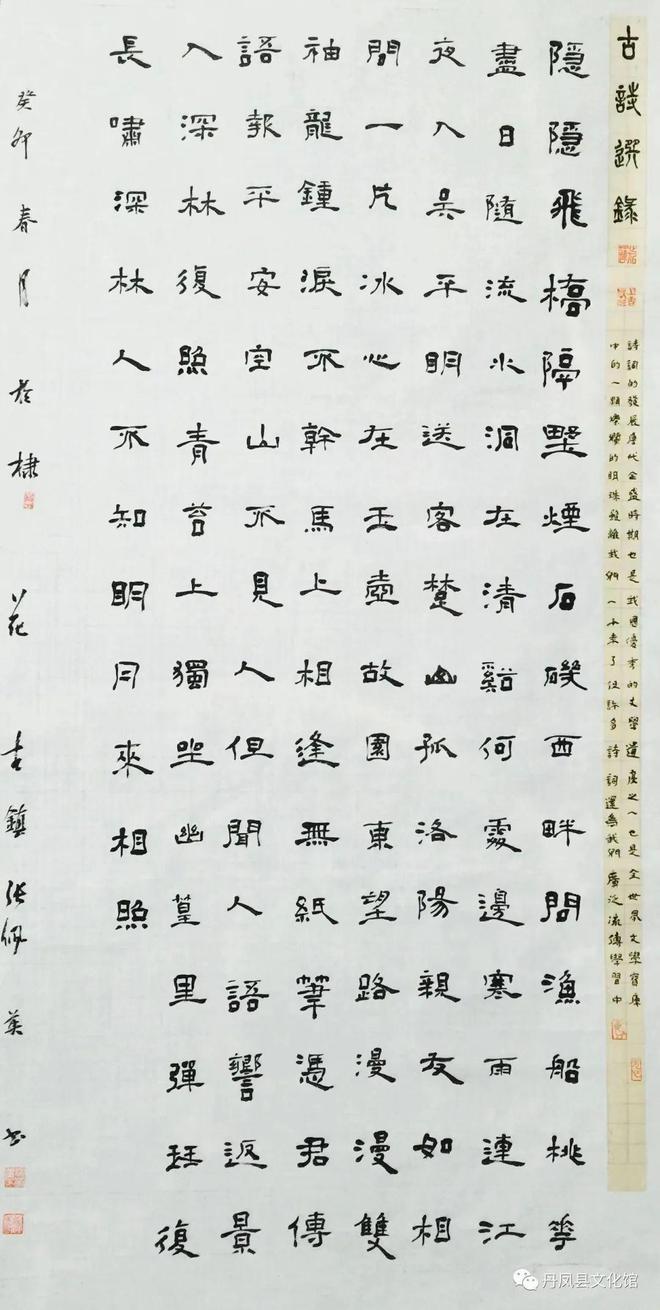 古詩選錄
詩詞的發展唐代全盛時期也是我國優秀的文學遺產之一也是全世界文學寶庫
中的一顆燦爛的明珠雖離我們一千来了但許多詩詞還為我們廣泛流傳學習中
隱隱飛橋隔壄煙石磯西畔問漁船桃花
盡日隨流水洞在清谿何處邊寒雨連江
夜入吳平明送客楚山孤洛陽親友如相
問一片冰心在玉壺故園東望路漫漫雙
袖龍鍾淚不幹馬上相逢無紙筆憑君傳
語報平安空山不見人但聞人語響返景
入深林復照青苔上獨坐幽篁里彈琴復
長嘯深林人不知明月來相照
癸卯春月於棣花古鎮張佩英書
丹凤县文化馆